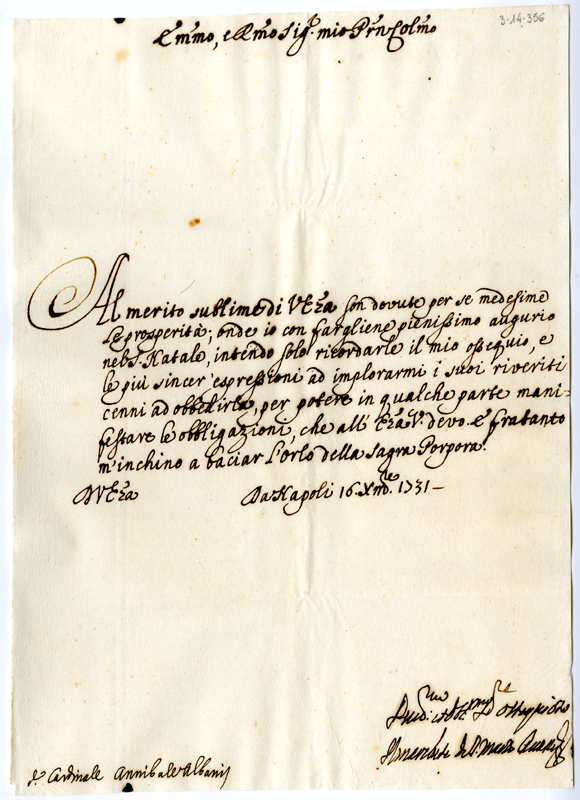 3-14-356
Emmo, e Rmo Sig.r mio Prn Colmo
Al merito sublime di VEza son dovute per se medesime
le prosperità; onde io con fargliene pienissimo augurio
nel S. Natale, intendo solo ricordarle il mio ossequio, e
le più sincer'espressioni ad implorarmi i suoi riveriti
cenni ad obbedirla, per potere in qualche parte mani=
festare le obbligazioni, che all'Eza V. devo. E fratanto
m'inchino a baciar l'orlo della sagra Porpora.
DVEza Da Napoli 16. Xmbre. 1731—
S.r Cardinale Annibale Albani